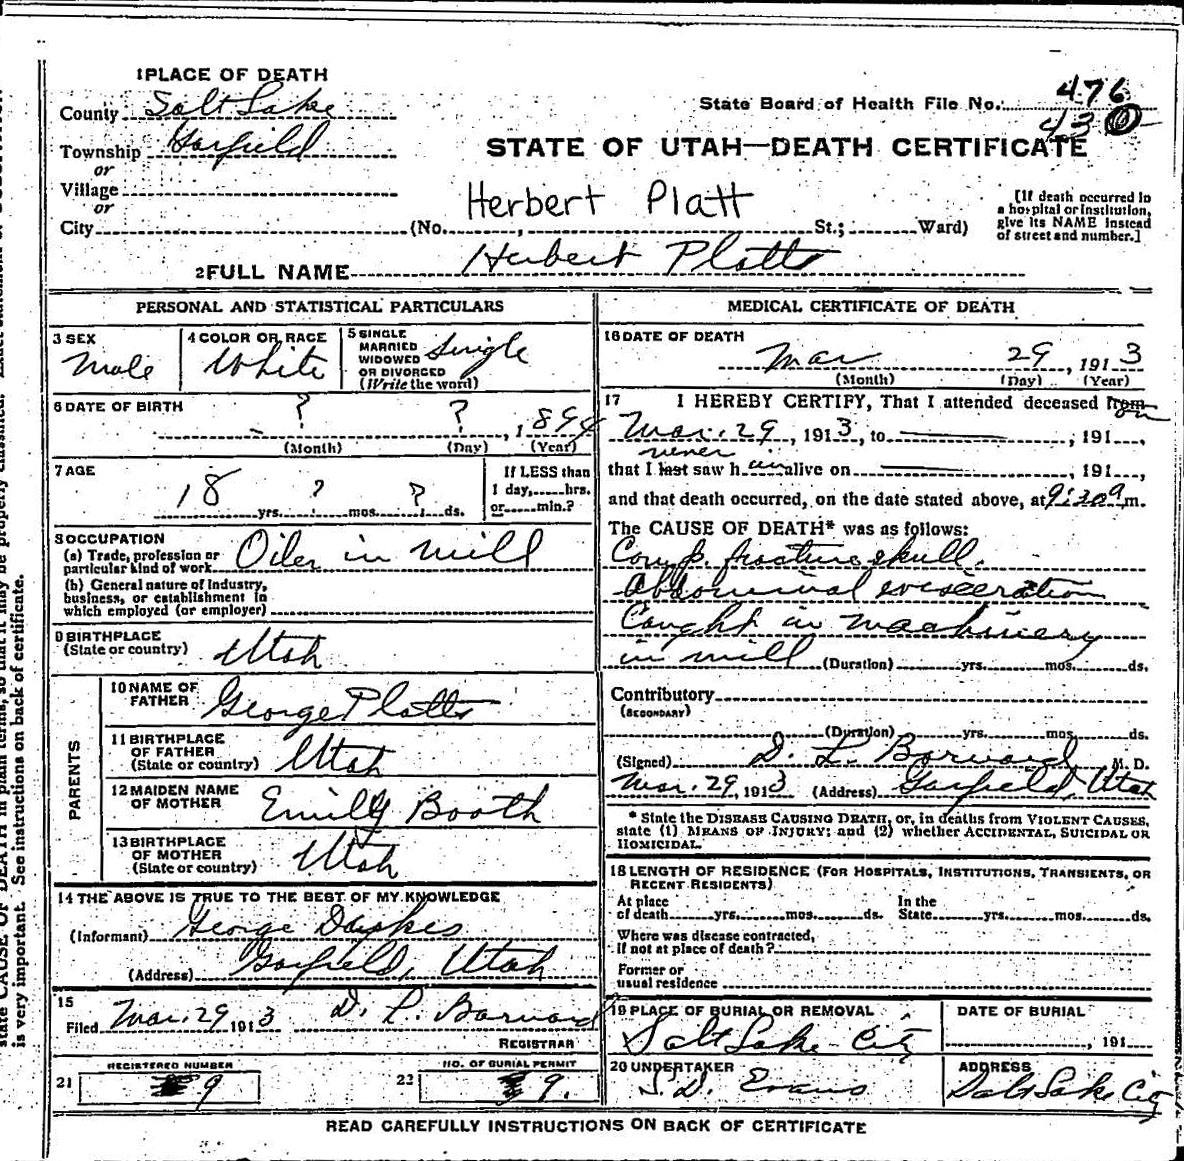 1 PLACE OF DEATH
County Salt Lake
State Board of Health File No. 476
430
Township Garfield
STATE OF UTAH—DEATH CERTIFICATE
or
Village
or
Herbert Platt
[If death occurred in
a hospital or institution,
give its NAME instead
of street and number.]
City (No. , St.; Ward)
2 FULL NAME Herbert Platts
PERSONAL AND STATISTICAL PARTICULARS
3 SEX
Male
4 COLOR OR RACE
White
5 SINGLE
MARRIED
WIDOWED
OR DIVORCED
(Write the word)
Single
6 DATE OF BIRTH
? ? , 1894
(Month) (Day) (Year)
7 AGE
18 yrs. ? mos. ? ds.
If LESS than
1 day, hrs.
or min.?
8 OCCUPATION
(a) Trade, profession or
particular kind of work Oiler in mill
(b) General nature of Industry,
business, or establishment in
which employed (or employer)
9 BIRTHPLACE
(State or country) Utah
PARENTS
10 NAME OF
FATHER George Platts
11 BIRTHPLACE
OF FATHER
(State or country) Utah
12 MAIDEN NAME
OF MOTHER Emily Booth
13 BIRTHPLACE
OF MOTHER
(State or country) Utah
14 THE ABOVE IS TRUE TO THE BEST OF MY KNOWLEDGE
(Informant) George
(Address) Garfield, Utah
15
Filed Mar. 29 1913 D. L. Barnard
REGISTRAR
REGISTERED NUMBER
21 9
NO. OF BURIAL PERMIT
22 9.
MEDICAL CERTIFICATE OF DEATH
16 DATE OF DEATH
Mar 29, 1913
(Month) (Day) (Year)
17 I HEREBY CERTIFY, That I attended deceased from on
Mar. 29, 1913, to , 191 ,
never
that I last saw him alive on , 191 ,
and that death occurred, on the date stated above, at 9:30 a m.
The CAUSE OF DEATH* was as follows:
Comp. fracture skull.
Abdominal evisceration
Caught in machinery
in mill (Duration) yrs. mos. ds.
Contributory
(SECONDARY)
(Duration) yrs. mos. ds.
(Signed) D. L. Barnard M. D.
Mar. 29, 1913 (Address) Garfield, Utah
* State the DISEASE CAUSING DEATH, or, in deaths from VIOLENT CAUSES,
state (1) MEANS OF INJURY; and (2) whether ACCIDENTAL, SUICIDAL OR
HOMICIDAL.
18 LENGTH OF RESIDENCE (FOR HOSPITALS, INSTITUTIONS, TRANSIENTS, OR
RECENT RESIDENTS)
At place
of death yrs. mos. ds.
In the
State yrs. mos. ds.
Where was disease contracted,
if not at place of death?
Former or
usual residence
19 PLACE OF BURIAL OR REMOVAL
Salt Lake City
DATE OF BURIAL
, 191
20 UNDERTAKER
S. D. Evans
ADDRESS
Salt Lake City
READ CAREFULLY INSTRUCTIONS ON BACK OF CERTIFICATE
state CAUSE OF DEATH in plain terms, so that it may be properly classified.
is very important. See instructions on back of certificate.